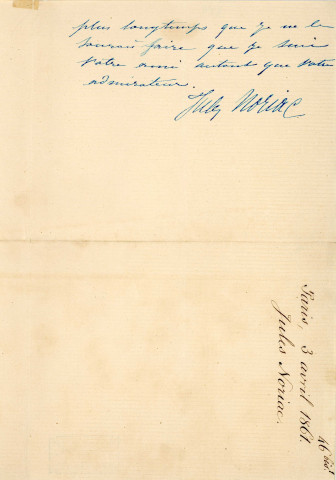 plus longtemps que je ne le
saurais faire que je suis
votre ami autant que votre
admirateur.
Jules Noriac
Paris, 3 avril 1861.
Jules Noriac.
46 bis.